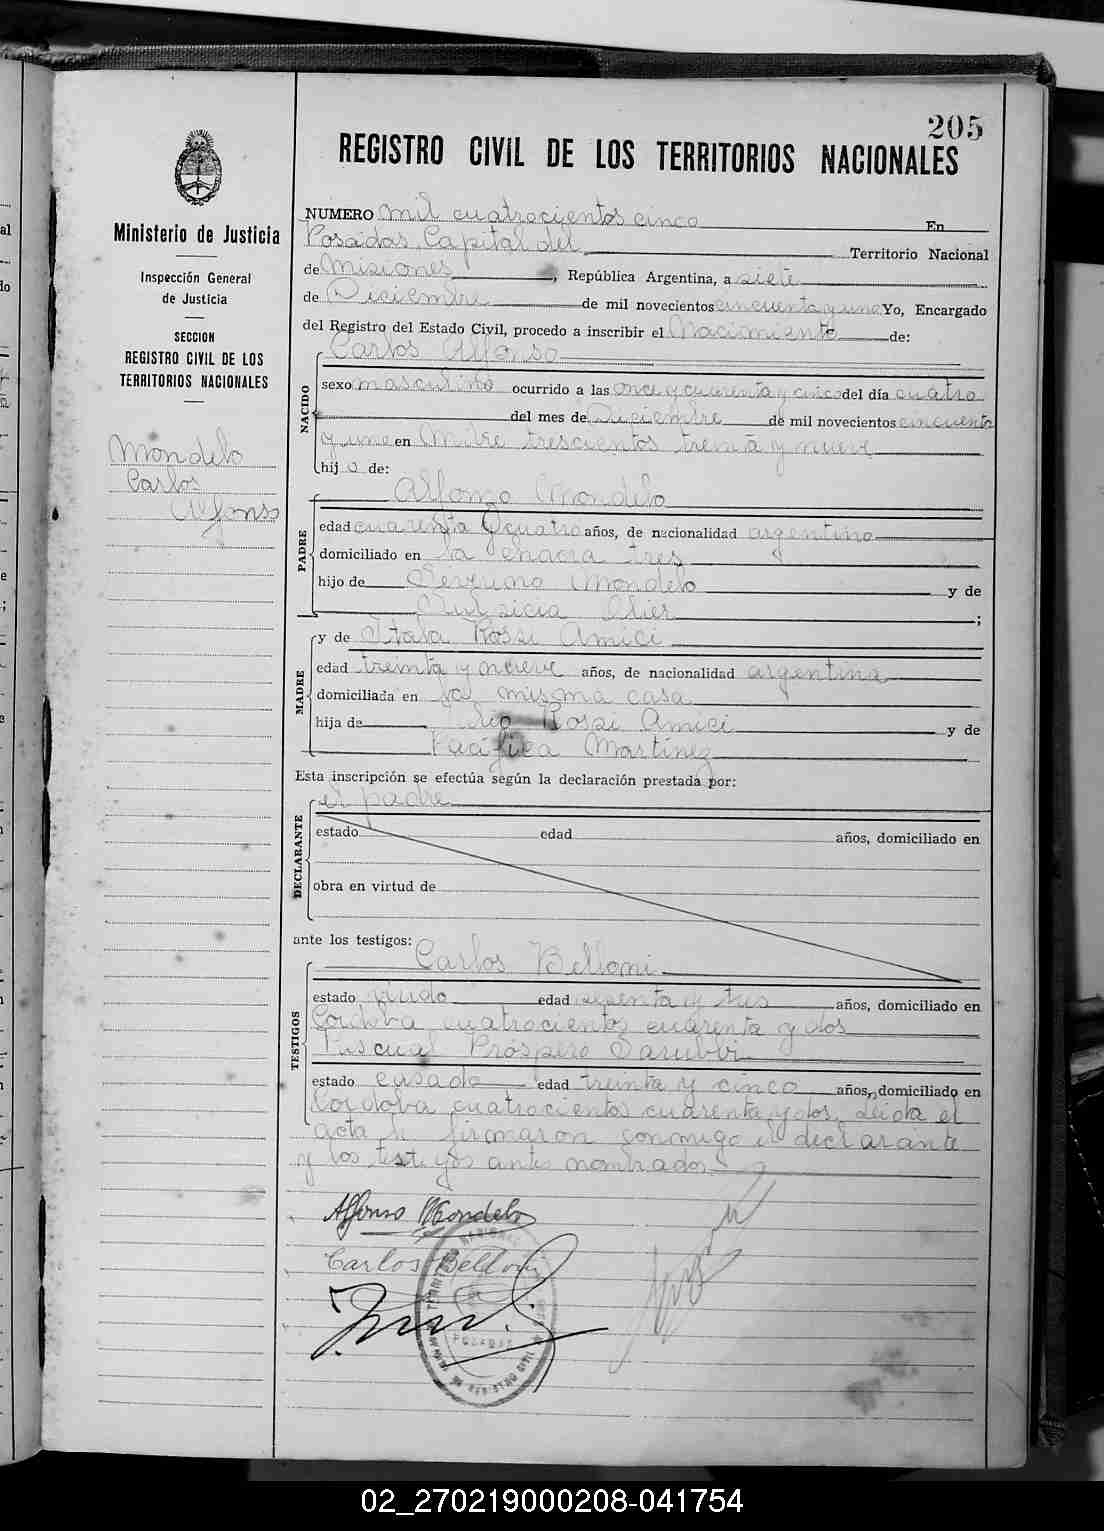 205
REGISTRO CIVIL DE LOS TERRITORIOS NACIONALES
Ministerio de Justicia
Inspección General
de Justicia
SECCION
REGISTRO CIVIL DE LOS
TERRITORIOS NACIONALES
Mondelo
Carlos
Alfonso
NUMERO mil cuatrocientos cinco En
Posadas, Capital del Territorio Nacional
de Misiones, República Argentina, a siete
de Diciembre de mil novecientos cincuenta y uno Yo, Encargado
del Registro del Estado Civil, procedo a inscribir el Nacimiento de:
Carlos Alfonso
NACIDO
sexo masculino ocurrido a las once y cuarenta y cinco del día cuatro
del mes de Diciembre de mil novecientos cincuenta
y uno en Mitre trescientos treinta y nueve
hijo de:
Alfonso Mondelo
PADRE
edad cuarenta y cuatro años, de nacionalidad argentino
domiciliado en la chacra tres
hijo de Mondelo y de
;
y de Itala Rossi Amici
MADRE
edad treinta y nueve años, de nacionalidad argentina
domiciliada en la misma casa
hija de Rossi Amici y de
Pacífica Martínez
Esta inscripción se efectúa según la declaración prestada por:
el padre
DECLARANTE
estado edad años, domiciliado en
obra en virtud de
ante los testigos:
Carlos Belloni
TESTIGOS
estado viudo edad sesenta y tres años, domiciliado en
Córdoba cuatrocientos cuarenta y dos
Pascual Próspero Sarubbi
estado casado edad treinta y cinco años, domiciliado en
Córdoba cuatrocientos cuarenta y dos. Leida el
acta la firmaron conmigo el declarante
y los testigos antes nombrados
Alfonso Mondelo
Carlos Belloni
POSADAS
02_270219000208-041754